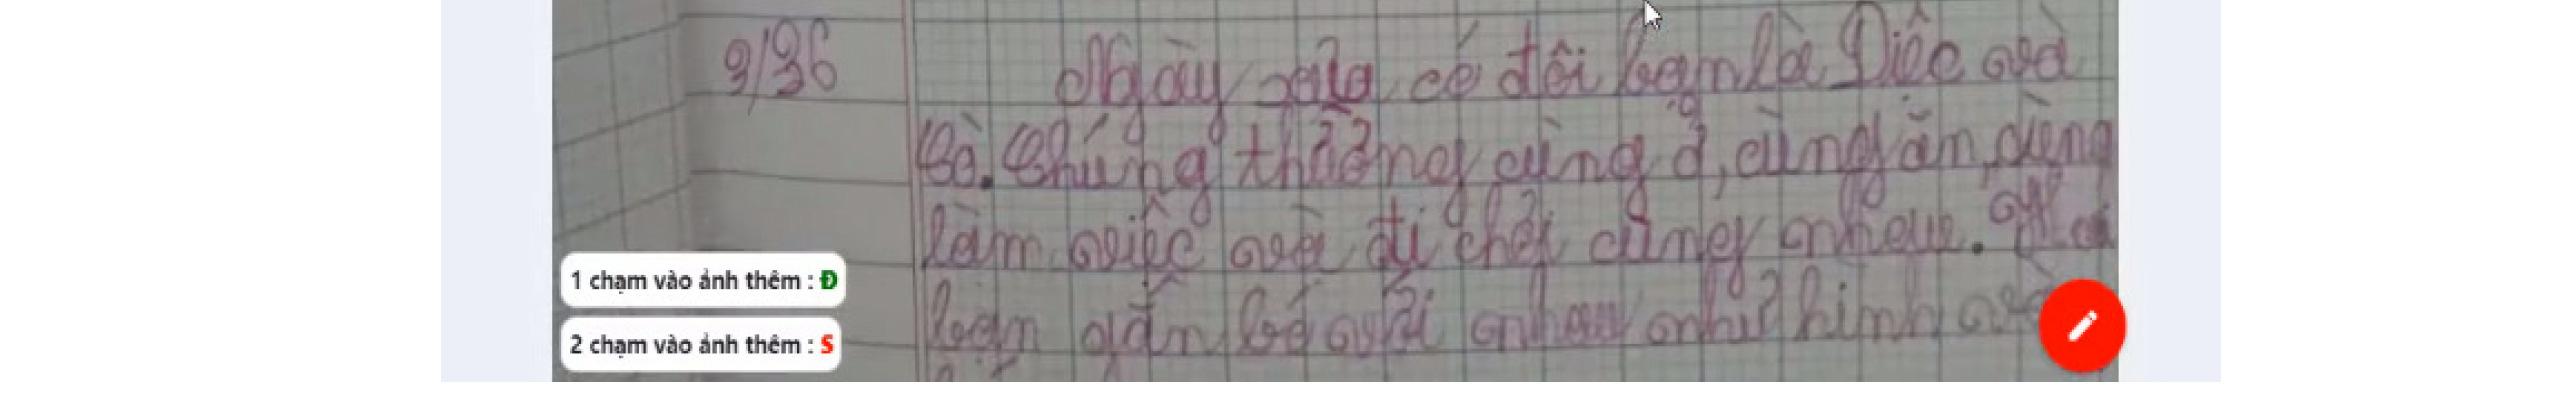 3/36
Ngày xưa, có đôi bạn là Diệc và
Cò. Chúng thường cùng ở, cùng ăn, cùng
làm việc và đi chơi cùng nhau.
bạn gắn bó với nhau như hình và
1 chạm vào ảnh thêm : Đ
2 chạm vào ảnh thêm : S